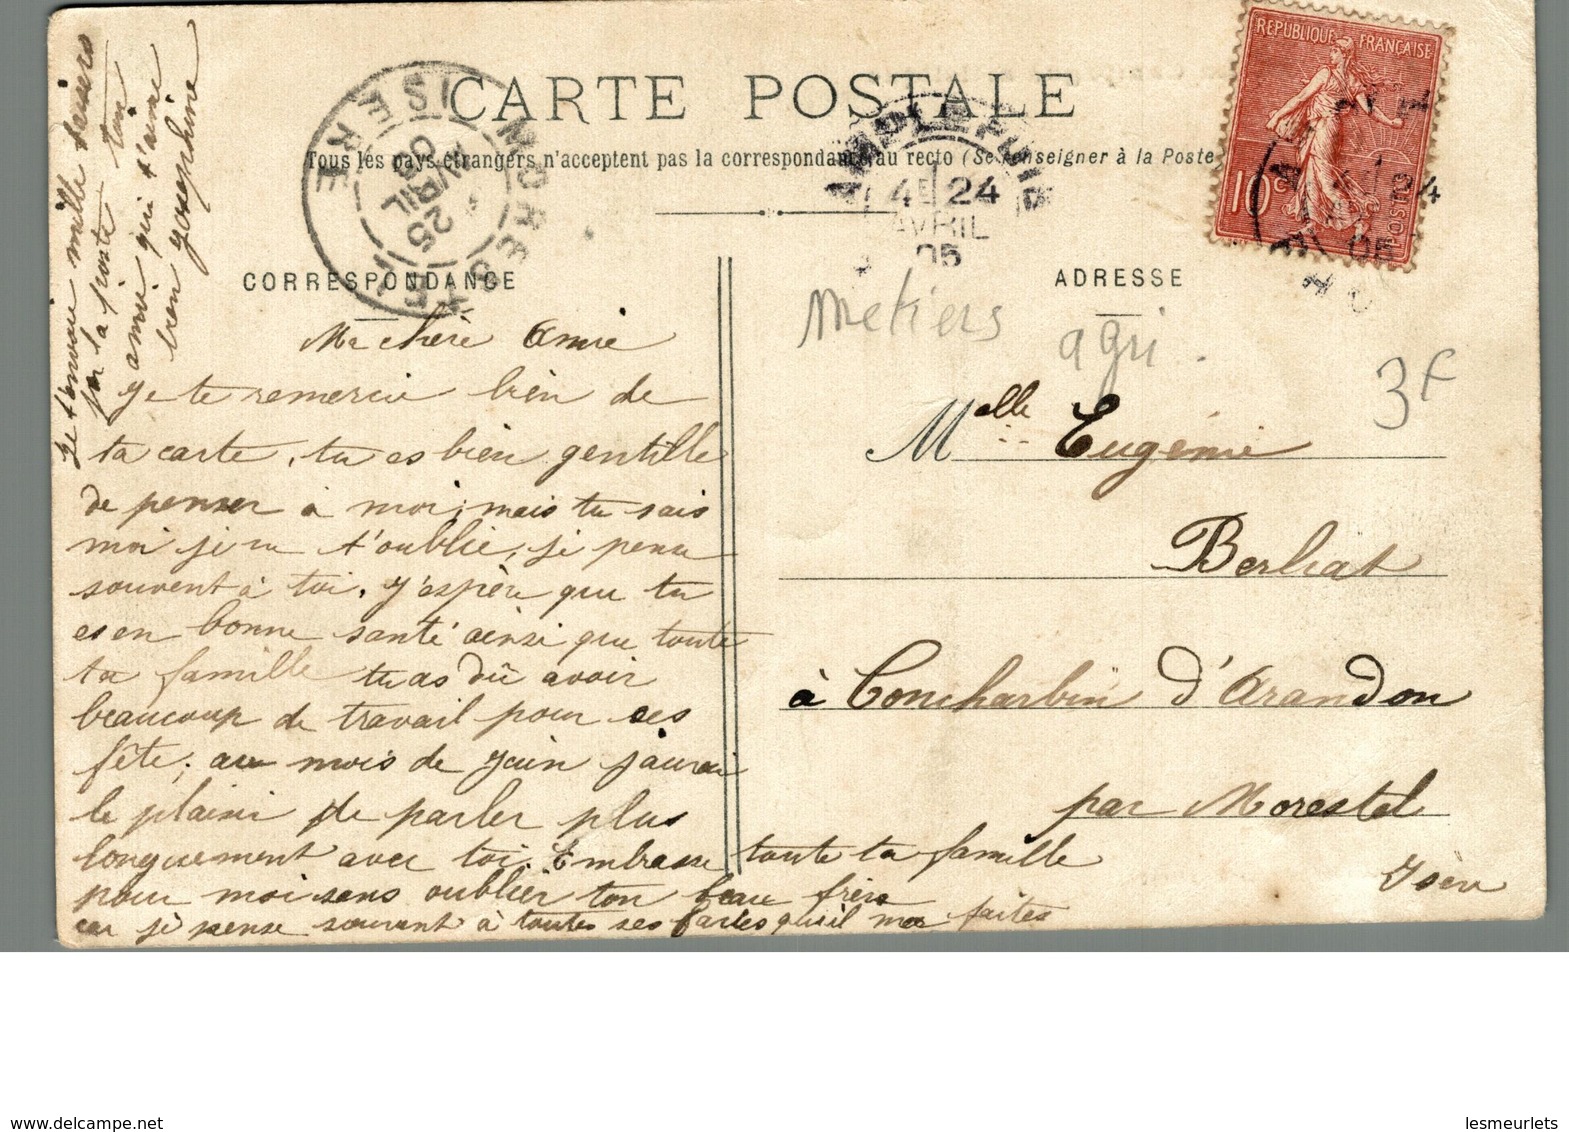 CARTE POSTALE
Tous les pays étrangers n'acceptent pas la correspondance au recto (Se renseigner à la Poste
REPUBLIQUE FRANÇAISE
10c
POSTES
MORESTEL
ISERE
25
AVRIL
05
AMPLEPUIS
4E 24
AVRIL
05
CORRESPONDANCE
ADRESSE
Metiers
agri.
3F
Ma chère Amie
Je te remercie bien de
ta carte, tu es bien gentille
de penser à moi, mais tu sais
moi je ne t'oublie, je pense
souvent à toi. J'espère que tu
es en bonne santé ainsi que toute
ta famille tu as dû avoir
beaucoup de travail pour ces
fête; au mois de Juin jaurai
le plaisir de parler plus
longuement avec toi. Embrasse toute ta famille
pour moi sans oublier ton beau frère
car je pense souvent à toutes ses farces qu'il me faites
Je t'envoie mille baisers
par la poste ton
amie qui t'aime
bien Josephine
Melle Eugénie
Berliat
à Concharbin d'Arandon
par Morestel
Isère
www.delcampe.net
lesmeurlets